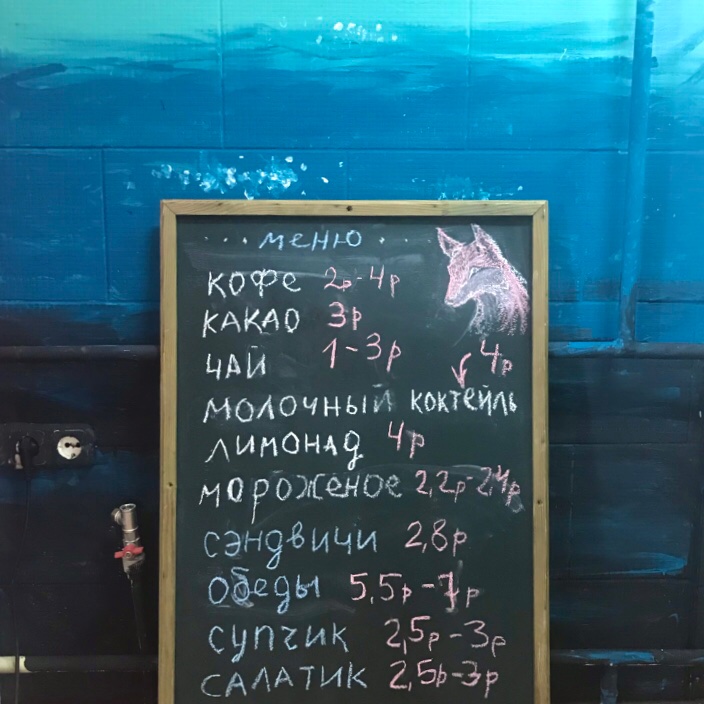 ... меню ...
кофе 2р-4р
какао 3р
чай 1-3р
4р
молочный коктейль
лимонад 4р
мороженое 2,2р-2,4р
сэндвичи 2,8р
обеды 5,5р-7р
супчик 2,5р-3р
салатик 2,5р-3р